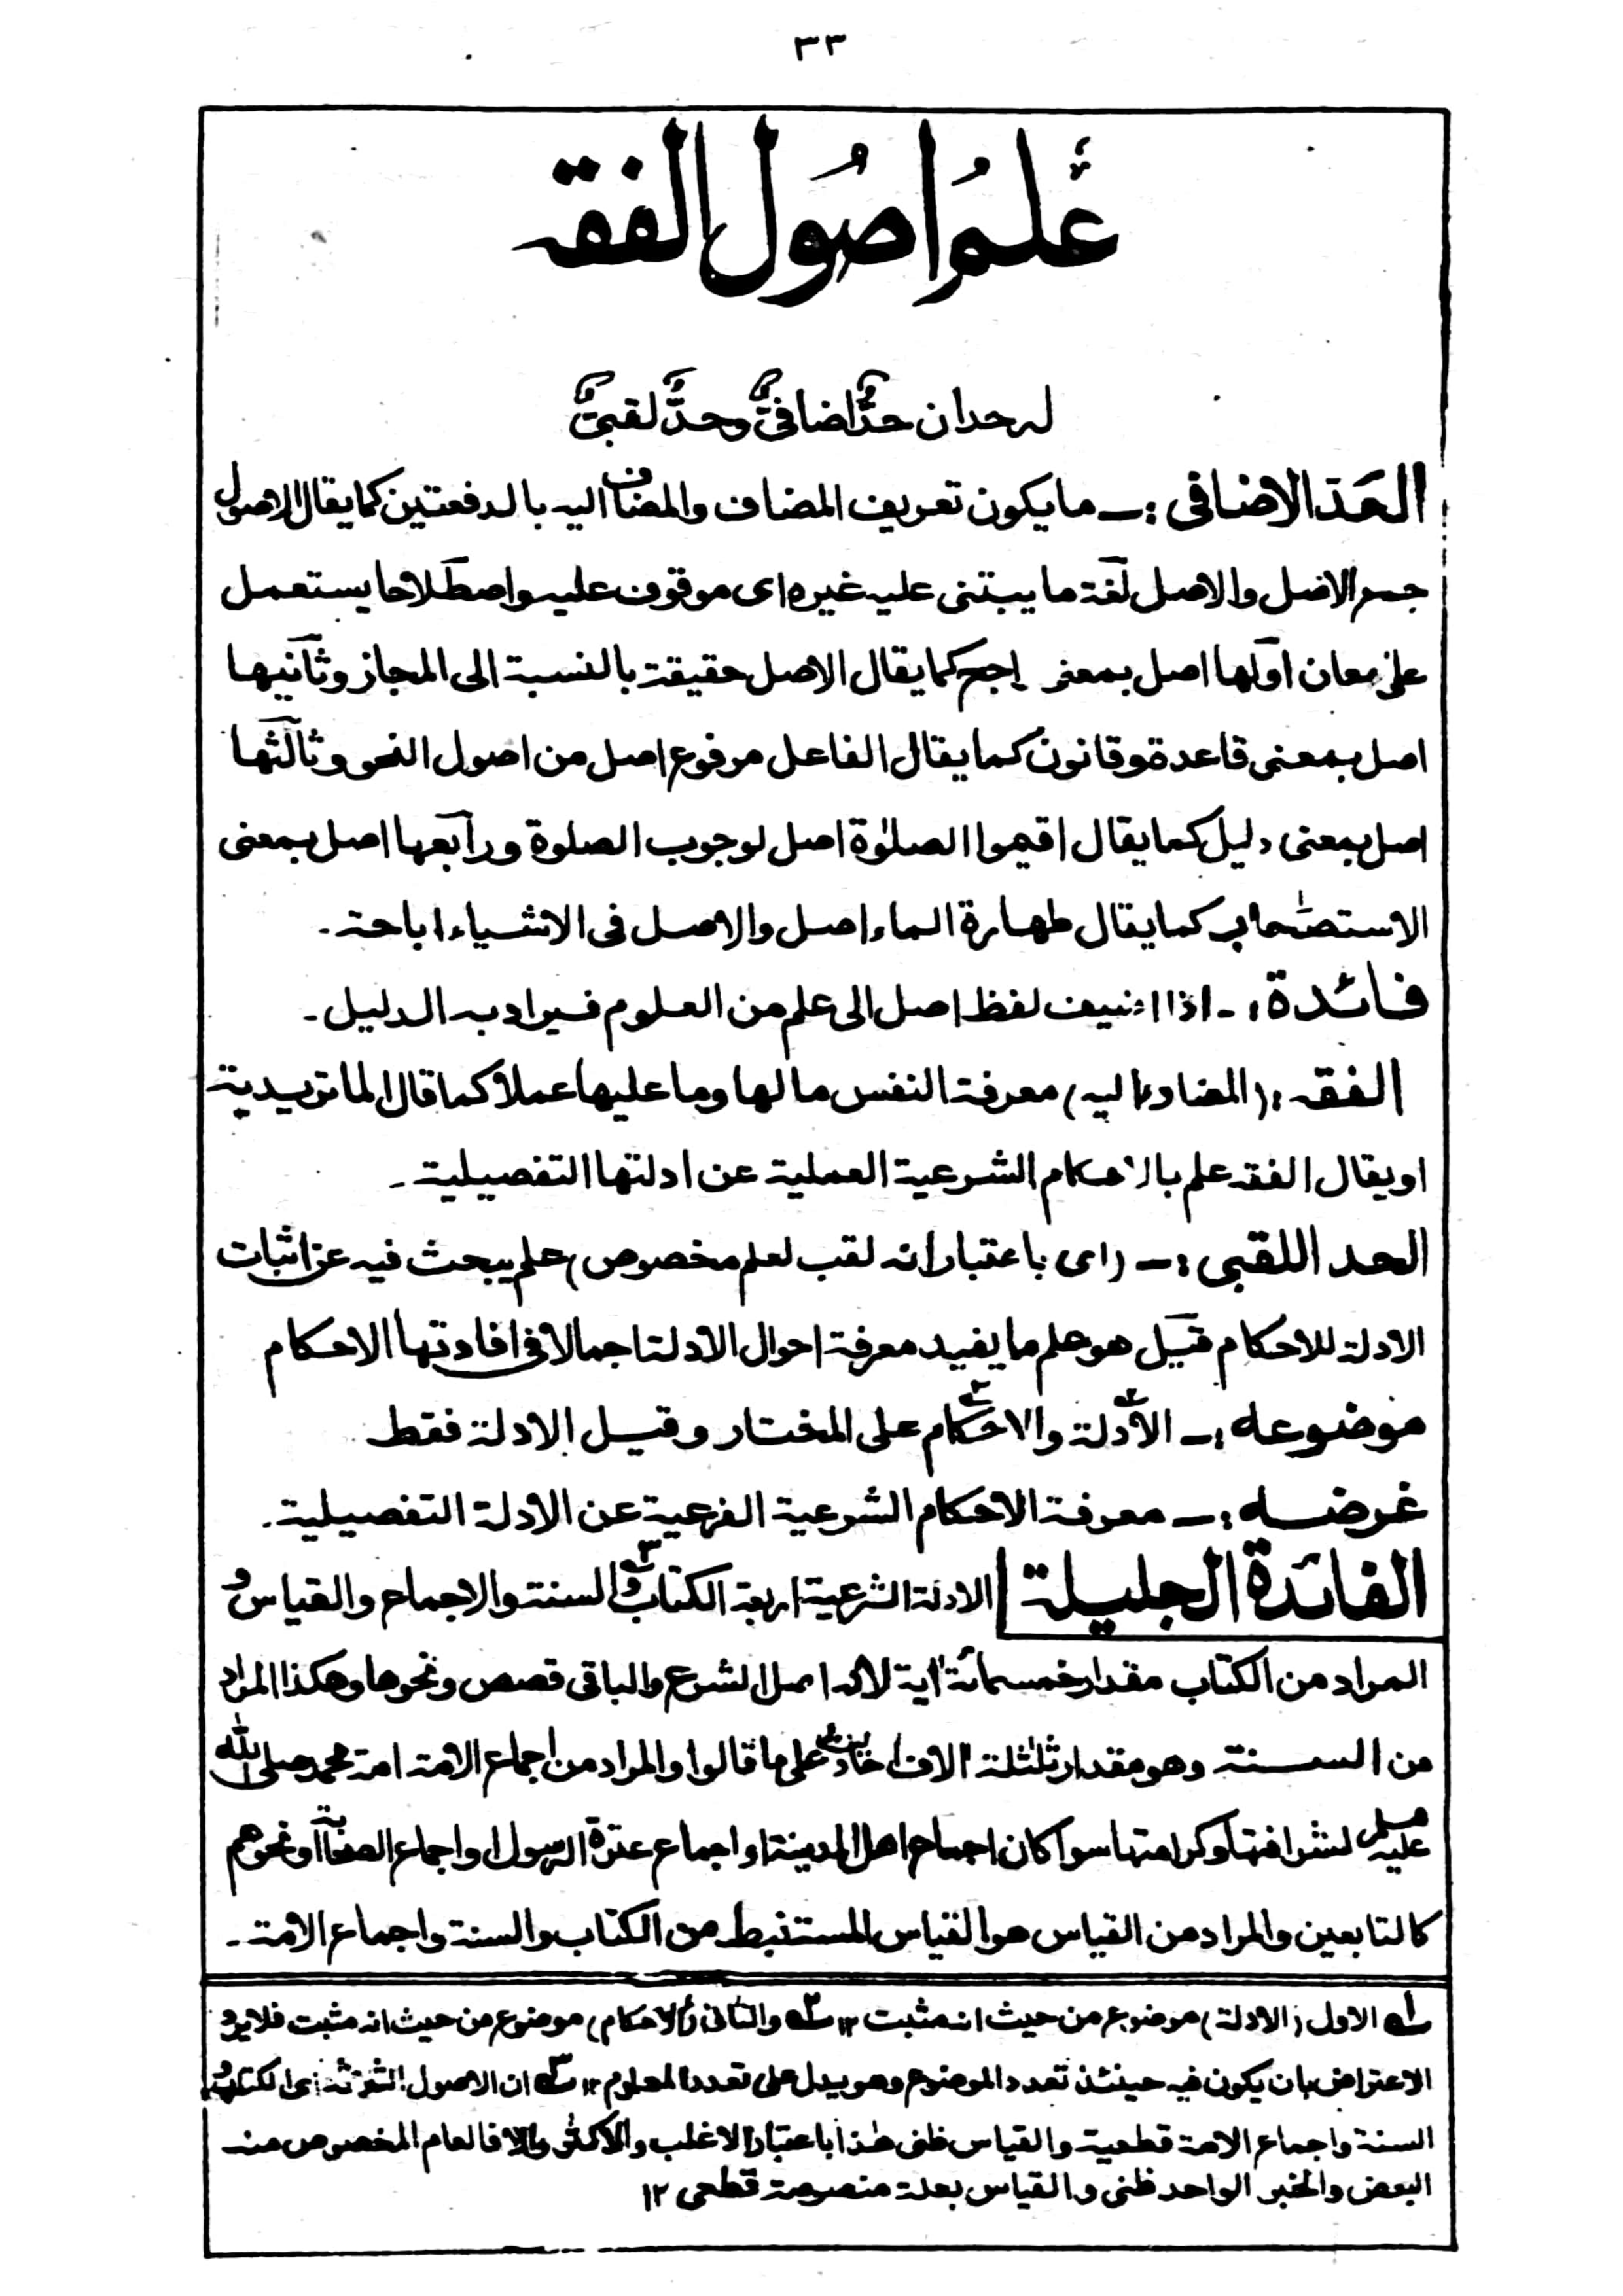 ٣٣
علمُ اصُول الفقہ
لہ حدان حدٌّ اضافیٌّ وحدٌّ لقبیٌّ
الحَدّ الاضافی :ــ ما یکون تعریف المضاف والمضاف الیہ بالدفعتین کما یقال الاصول
جمع الاصل والاصل لغۃ ما یبتنی علیہ غیرہ ای موقوف علیہ واصطلاحا یستعمل
علیٰ معان اولھا اصل بمعنی راجح کما یقال الاصل حقیقۃ بالنسبۃ الی المجاز وثانیھا
اصل بمعنی قاعدۃ وقانون کما یقال الفاعل مرفوع اصل من اصول النحو وثالثھا
اصل بمعنی دلیل کما یقال اقیموا الصلوٰۃ اصل لوجوب الصلوۃ ورابعھا اصل بمعنی
الاستصحاب کما یقال طھارۃ الماء اصل والاصل فی الاشیاء اباحۃ ۔
فائدۃ :۔ اذا اضیف لفظ اصل الی علم من العلوم فیراد بہ الدلیل ۔
الفقہ :( المضاف الیہ ) معرفۃ النفس ما لھا وما علیھا عملا کما قال الماتریدیۃ
او یقال الفقہ علم بالاحکام الشرعیۃ العملیۃ عن ادلتھا التفصیلیۃ ۔
الحد اللقبی :ــ (ای باعتبار انہ لقب لعلم مخصوص) علم یبحث فیہ عن اثبات
الادلۃ للاحکام قیل ھو علم ما یفید معرفۃ احوال الادلۃ اجمالا فی افادتھا الاحکام
موضوعہ :ــ الادلۃ والاحکام علی المختار وقیل الادلۃ فقط
غرضہ :ــ معرفۃ الاحکام الشرعیۃ الفرعیۃ عن الادلۃ التفصیلیۃ ۔
الفائدۃ الجلیلۃ الادلۃ الشرعیۃ اربعۃ الکتاب والسنۃ والاجماع والقیاس و
المراد من الکتاب مقدار خمسمائۃ اٰیۃ لانہ اصل الشرع والباقی قصص ونحوھا وھکذا المراد
من السنۃ وھو مقدار ثلٰثۃ الاف احادیث علی ما قالوا والمراد من اجماع الامۃ امۃ محمد صلی اللہ
علیہ وسلم لشرافتھا وکرامتھا سواء کان اجماع اھل المدینۃ او اجماع عترۃ الرسول او اجماع الصحابۃ او نحوھم
کالتابعین والمراد من القیاس ھو القیاس المستنبط من الکتاب والسنۃ واجماع الامۃ ۔
۱؎ الاول (الادلۃ) موضوع من حیث انہ مثبت ۱۲ ۲؎ والثانی (الاحکام) موضوع من حیث انہ مثبت فلا یرد
الاعتراض بان یکون فیہ حینئذ تعدد الموضوع وھو یدل علی تعدد المعلوم ۱۲ ۳؎ ان الاصول الثلٰثۃ ای الکتاب و
السنۃ واجماع الامۃ قطعیۃ والقیاس ظنی ھٰذا باعتبار الاغلب والاکثر والا فالعام المخصوص منہ
البعض والخبر الواحد ظنی والقیاس بعلۃ منصوصۃ قطعی ۱۲